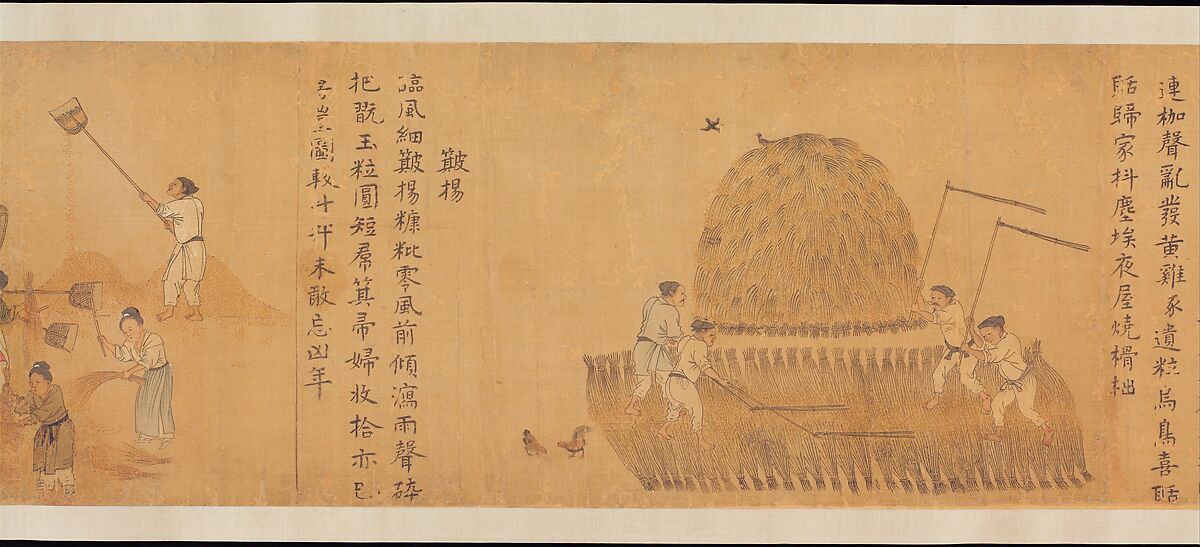 連枷聲亂發黃雞豕遺粒烏鳥喜聒
聒歸家抖塵埃夜屋燒榾柮
簸揚
臨風細簸揚糠粃零風前傾瀉雨聲碎
把翫玉粒圓短帬箕帚婦收拾亦已
圖較斗升未敢忘凶年